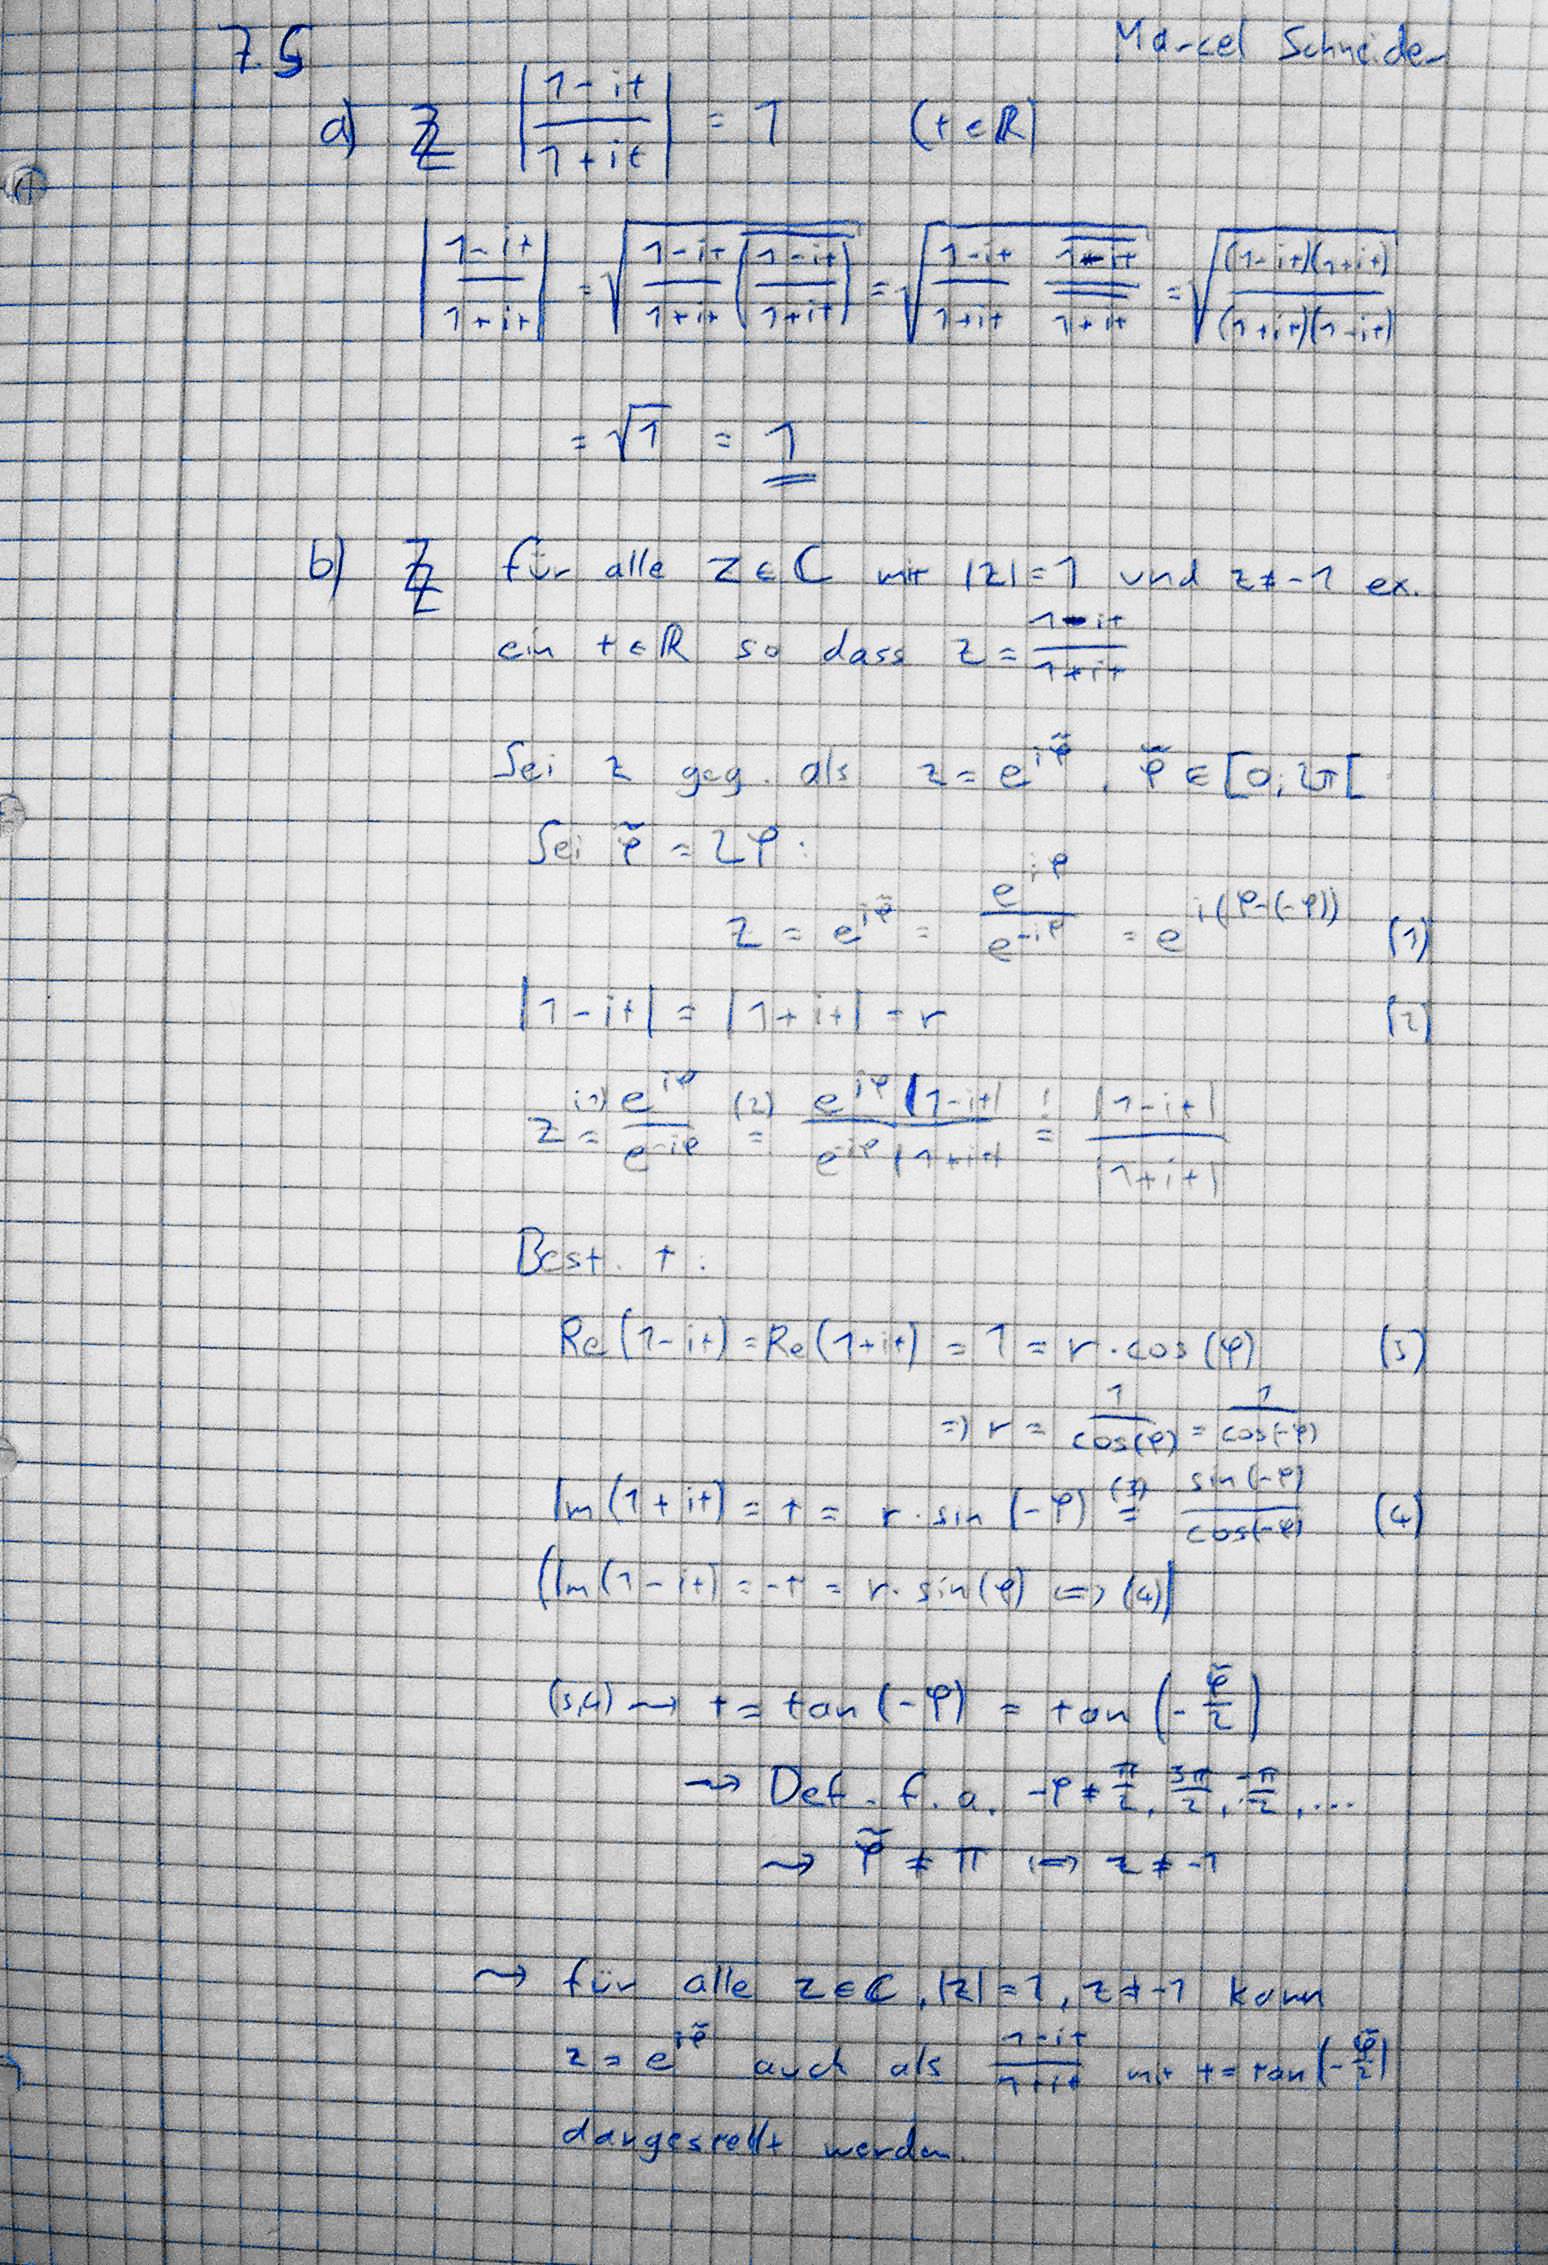 7.5 Marcel Schneider
a) ZZ |(1-it)/(1+it)| = 1 (t∈ℝ)
|(1-it)/(1+it)| = √((1-it)/(1+it) \overline{((1-it)/(1+it))}) = √((1-it)/(1+it) \overline{1-it}/\overline{1+it}) = √((1-it)(1+it)/(1+it)(1-it))
= √1 = 1
b) ZZ für alle z∈ℂ mit |z|=1 und z≠-1 ex.
ein t∈ℝ so dass z = (1-it)/(1+it)
Sei z geg. als z = e^{iφ̃}, φ̃ ∈ [0; 2π[
Sei φ̃ = 2φ:
z = e^{iφ̃} = e^{iφ}/e^{-iφ} = e^{i(φ-(-φ))} (1)
|1-it| = |1+it| = r (2)
z =^{(1)} e^{iφ}/e^{-iφ} =^{(2)} e^{iφ}|1-it|/e^{-iφ}|1+it| =^{!} |1-it|/|1+it|
Best. t:
Re(1-it) = Re(1+it) = 1 = r·cos(φ) (3)
=> r = 1/cos(φ) = 1/cos(-φ)
Im(1+it) = t = r·sin(-φ) =^{(3)} sin(-φ)/cos(-φ) (4)
(Im(1-it) = -t = r·sin(φ) <=> (4))
(3,4) ⇝ t = tan(-φ) = tan(-φ̃/2)
⇝ Def. f. a. -φ ≠ π/2, 3π/2, -π/2, ...
⇝ φ̃ ≠ π <=> z ≠ -1
⇝ für alle z∈ℂ, |z|=1, z≠-1 kann
z = e^{iφ̃} auch als (1-it)/(1+it) mit t = tan(-φ̃/2)
dargestellt werden.